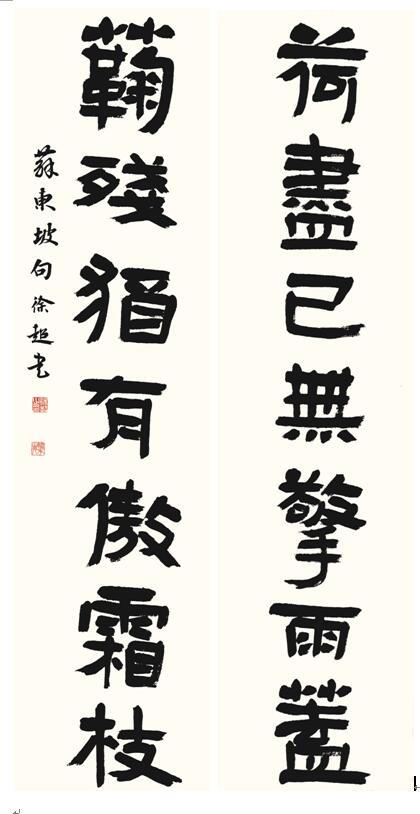 荷盡已無擎雨蓋
蘜殘猶有傲霜枝
蘇東坡句徐超書